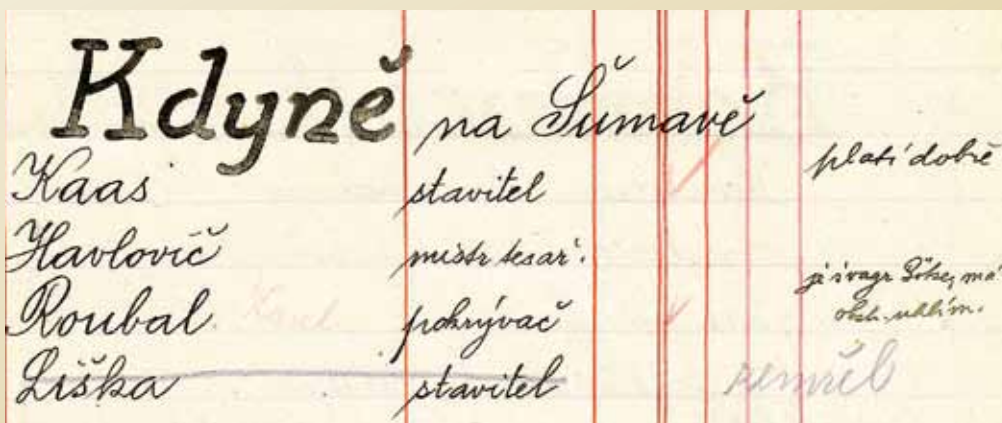 Kdyně na Šumavě
Kaas stavitel platí dobře
Havlovič mistr tesař.
je švagr má
Roubal Karel pokrývač obch. uhlím.
Liška stavitel zemřel